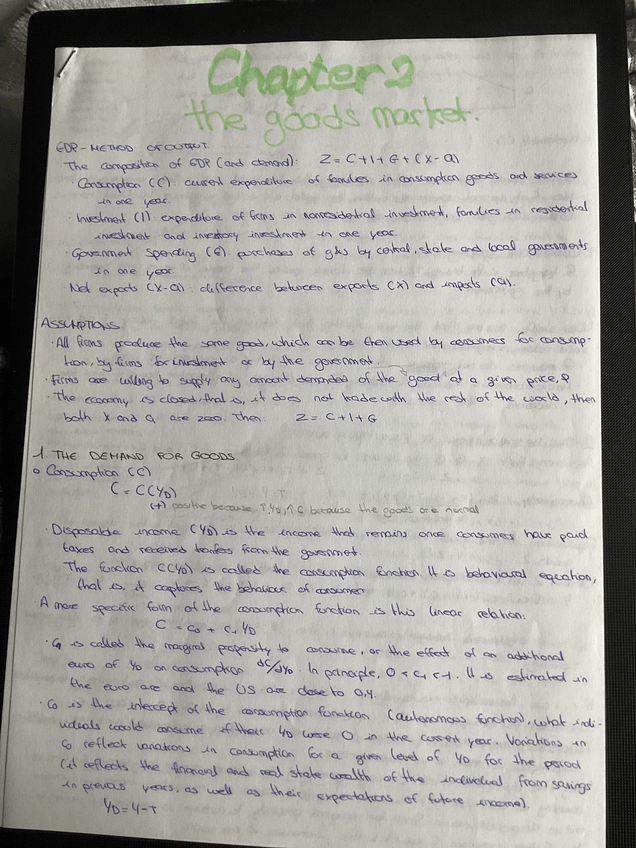 Chapter 2
the goods market.
GDP - METHOD OF OUTPUT
The composition of GDP (and demand): Z = C + I + G + (X - Q)
· Consumption (C): current expenditure of families in consumption goods and services
in one year.
· Investment (I) expenditure of firms in nonresidential investment, families in residential
investment and inventory investment in one year.
Government Spending (G) purchases of g&s by central, state and local governments
in one year.
Net exports (X-Q): difference between exports (X) and imports (Q).
ASSUMPTIONS
· All firms produce the same good, which can be then used by consumers for consump-
tion, by firms for investment or by the government.
· Firms are willing to supply any amount demanded of the "good" at a given price, P
· The economy is closed, that is, it does not trade with the rest of the world, then
both X and Q are zero. Then: Z = C + I + G
1. THE DEMAND FOR GOODS
o Consumption (C)
C = C(YD)
(+) positive because ↑YD, ↑C because the goods are normal
· Disposable income (YD) is the income that remains once consumers have paid
taxes and received transfers from the government.
The function C(YD) is called the consumption function. It is behavioural equation,
that is, it captures the behaviour of consumer.
A more specific form of the consumption function is this linear relation:
C = c0 + c1 YD
· C1 is called the marginal propensity to consume, or the effect of an additional
euro of YD on consumption dC/dYD. In principle, 0 < c1 < 1. It is estimated in
the euro are and the US are close to 0,4.
· C0 is the intercept of the consumption function (autonomous function), what indi-
viduals would consume if their YD were 0 in the current year. Variations in
C0 reflect variations in consumption for a given level of YD for the period
(it reflects the financial and real state wealth of the individual from savings
in previous years, as well as their expectations of future income).
YD = Y - T